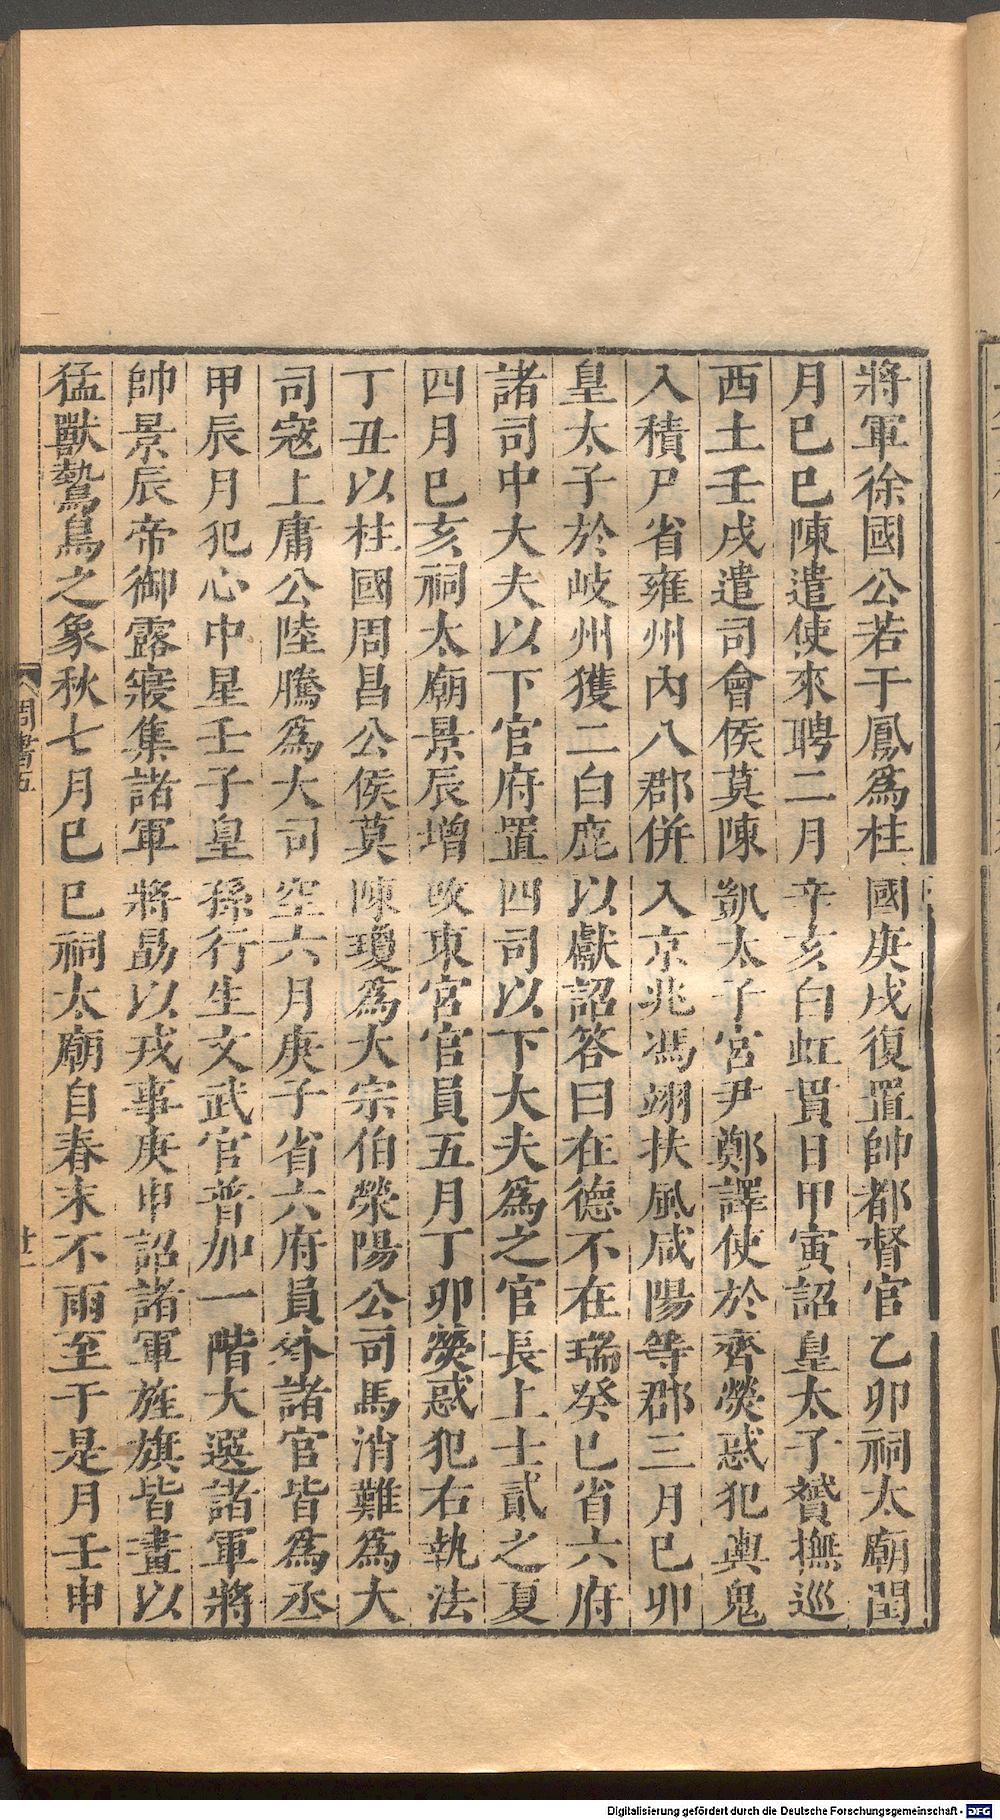 將軍徐國公若于鳳爲柱國庚戌復置帥都督官乙卯祠太廟閏
月巳巳陳遣使來聘二月辛亥白虹貫日甲寅詔皇太子贇撫巡
西土壬戌遣司會侯莫陳凱太子宮尹鄭譯使於齊熒惑犯輿鬼
入積尸省雍州內八郡併入京兆馮翊扶風咸陽等郡三月巳卯
皇太子於岐州獲二白鹿以獻詔答曰在德不在瑞癸巳省六府
諸司中大夫以下官府置四司以下大夫爲之官長上士貳之夏
四月巳亥祠太廟景辰增改東宮官員五月丁卯熒惑犯右執法
丁丑以柱國周昌公侯莫陳瓊爲大宗伯滎陽公司馬消難爲大
司寇上庸公陸騰爲大司空六月庚子省六府員外諸官皆爲丞
甲辰月犯心中星壬子皇孫衍生文武官普加一階大選諸軍將
帥景辰帝御露寢集諸軍將勗以戎事庚申詔諸軍旌旗皆畫以
猛獸鷙鳥之象秋七月巳巳祠太廟自春末不雨至于是月壬申
周書五
廿一
Digitalisierung gefördert durch die Deutsche Forschungsgemeinschaft - DFG